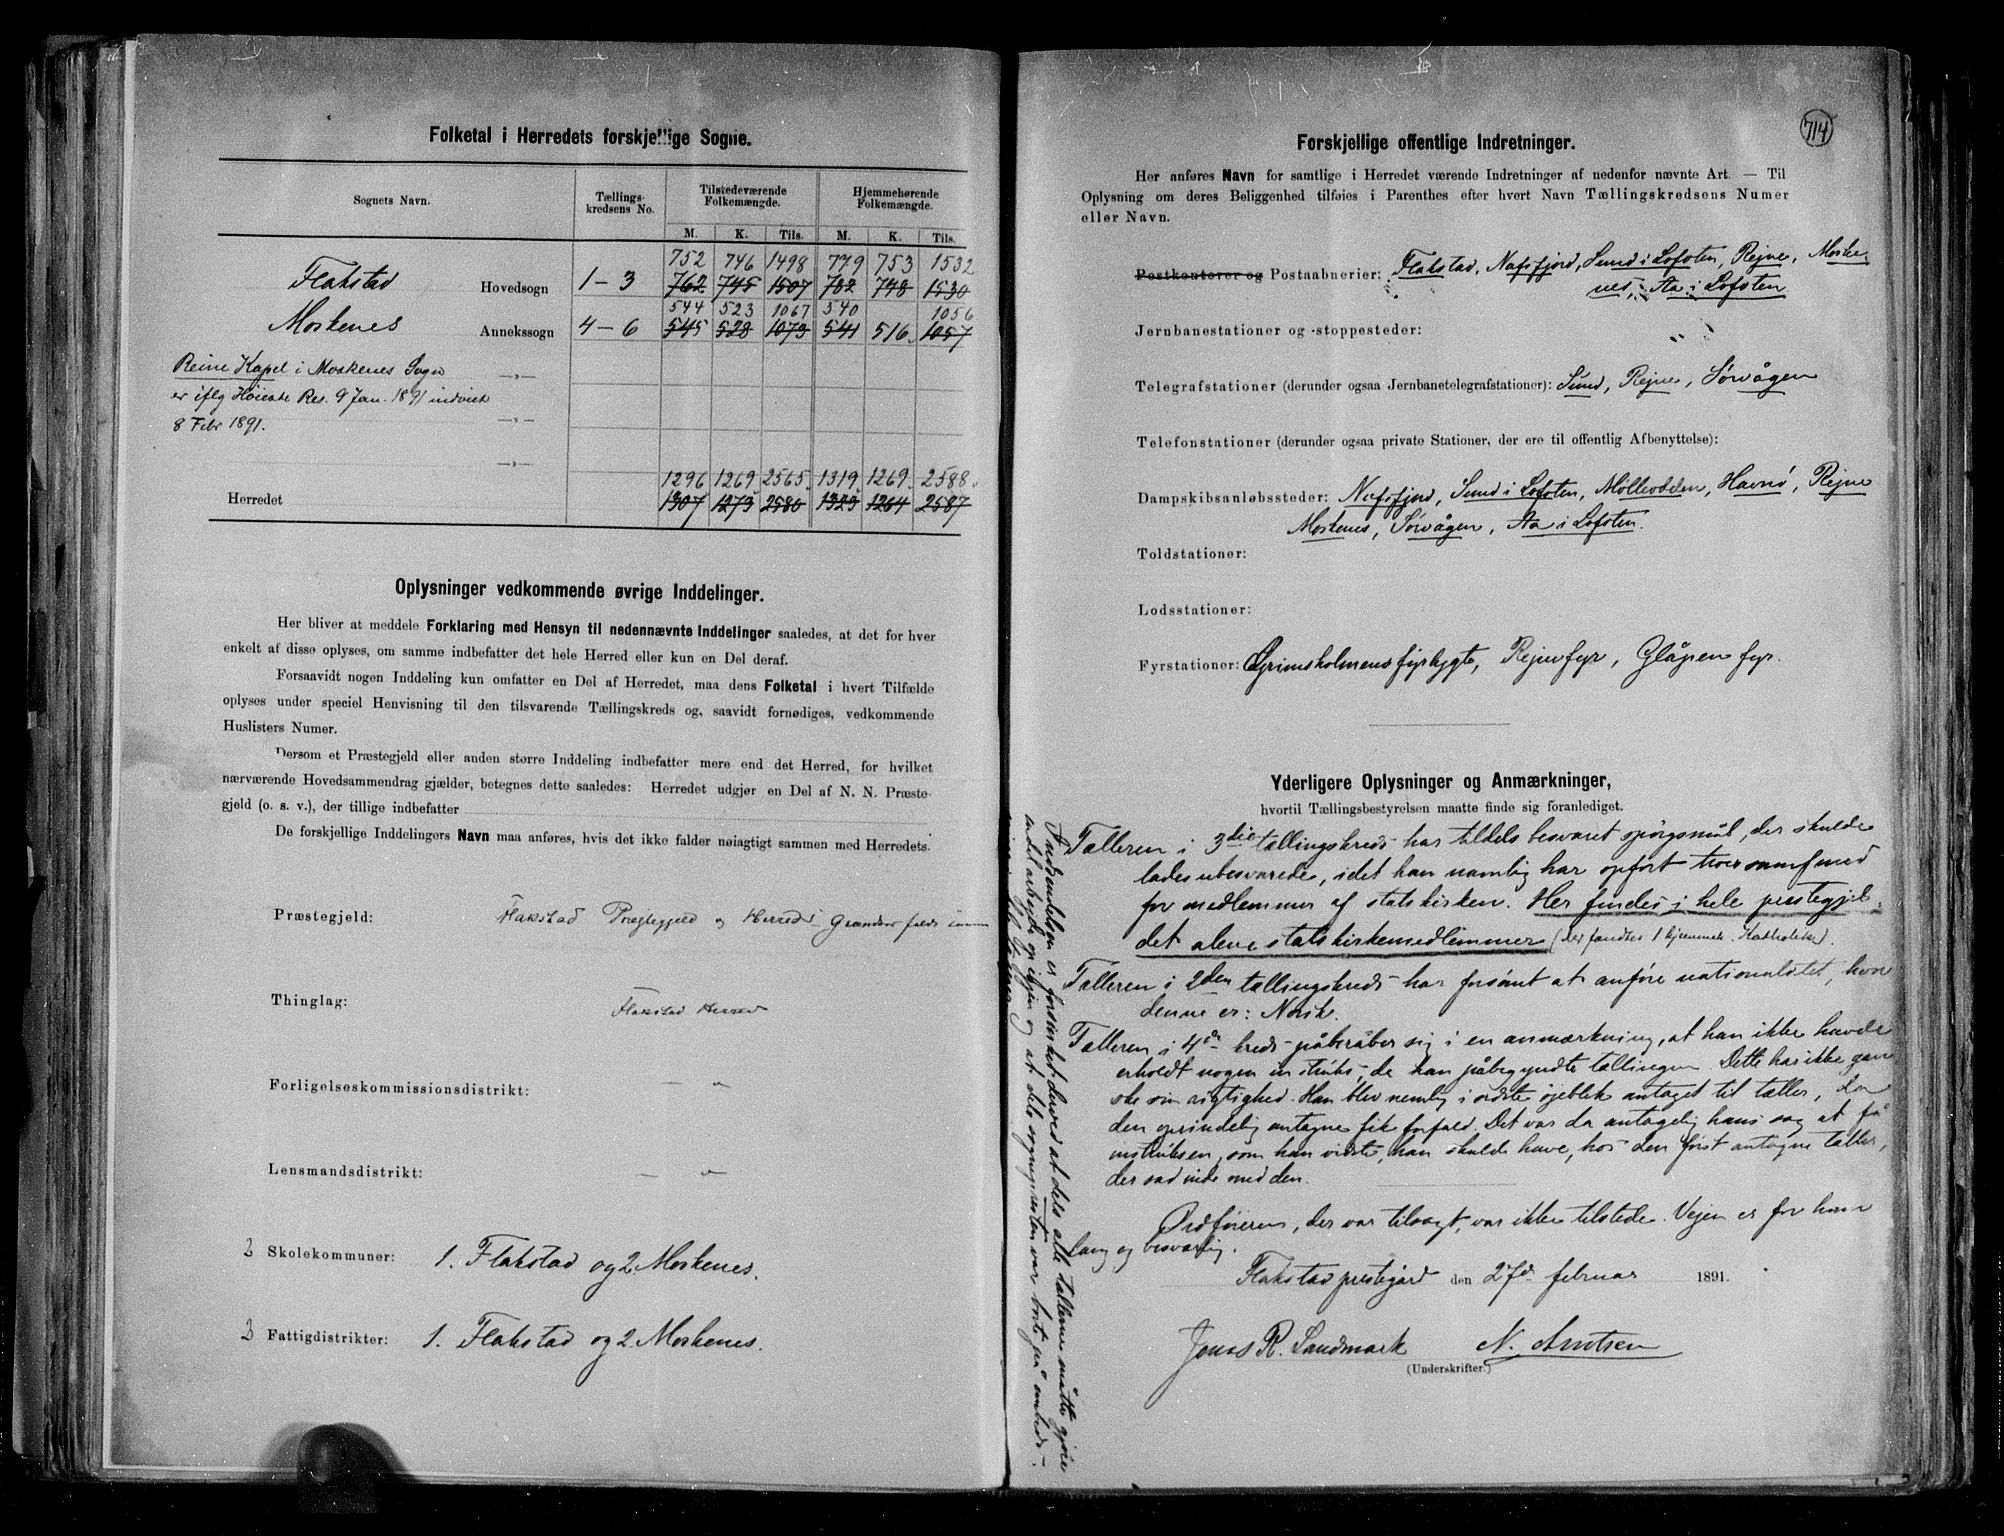 Folketal i Herredets forskjellige Sogne.
Sognets Navn.
Tællings-
kredsens No.
Tilstedeværende
Folkemængde.
Hjemmehørende
Folkemængde.
M. K. Tils. M. K. Tils.
752 746 1498 779 753 1532
Flakstad Hovedsogn 1-3 762 745 1507 782 748 1530
544 523 1067 540 1056
Moskenes Annekssogn 4-6 545 528 1073 541 516 1057
Reine Kapel i Moskenes Sogn
er iflg Høieste Res. 9 Jan. 1891 indviet
8 Febr 1891.
1296 1269 2565 1319 1269 2588
Herredet 1307 1273 2580 1323 1264 2587
Oplysninger vedkommende øvrige Inddelinger.
Her bliver at meddele Forklaring med Hensyn til nedennævnte Inddelinger saaledes, at det for hver
enkelt af disse oplyses, om samme indbefatter det hele Herred eller kun en Del deraf.
Forsaavidt nogen Inddeling kun omfatter en Del af Herredet, maa dens Folketal i hvert Tilfælde
oplyses under speciel Henvisning til den tilsvarende Tællingskreds og, saavidt fornødiges, vedkommende
Huslisters Numer.
Dersom et Præstegjeld eller anden større Inddeling indbefatter mere end det Herred, for hvilket
nærværende Hovedsammendrag gjælder, betegnes dette saaledes: Herredet udgjør en Del af N. N. Præste-
gjeld (o. s. v.), der tillige indbefatter
De forskjellige Inddelingers Navn maa anføres, hvis det ikke falder nøiagtigt sammen med Herredets.
Præstegjeld: Flakstad Præstegjeld og Herreds Grændser falde samm
Thinglag: Flakstad Herred
Forligelseskommissionsdistrikt: — „
Lensmandsdistrikt: — „
2 Skolekommuner: 1. Flakstad og 2. Moskenes.
2 Fattigdistrikter: 1. Flakstad og 2. Moskenes.
714
Forskjellige offentlige Indretninger.
Her anføres Navn for samtlige i Herredet værende Indretninger af nedenfor nævnte Art. — Til
Oplysning om deres Beliggenhed tilføies i Parenthes efter hvert Navn Tællingskredsens Numer
eller Navn.
Postkontorer og Postaabnerier: Flakstad, Nafsfjord, Sund i Lofoten, Rejne, Moske-
nes, Aa i Lofoten.
Jernbanestationer og -stoppesteder:
Telegrafstationer (derunder ogsaa Jernbanetelegrafstationer): Sund, Rejne, Sørvågen
Telefonstationer (derunder ogsaa private Stationer, der ere til offentlig Afbenyttelse):
Dampskibsanløbssteder: Nafsfjord, Sund i Lofoten, Mølleodden, Havnø, Rejne
Moskenes, Sørvågen, Aa i Lofoten.
Toldstationer:
Lodsstationer:
Fyrstationer: Grimsholmens fyrlygte, Rejnefyr, Glåpen fyr.
Yderligere Oplysninger og Anmærkninger,
hvortil Tællingsbestyrelsen maatte finde sig foranlediget.
Tælleren i 3die tællingskreds har tildels besvaret spørgsmål, der skulde
lades ubesvarede, idet han namlig har opført trossamfund
for medlemmer af statskirken. Her findes i hele prestegjel-
det alene statskirkemedlemmer (der fandtes 1 hjemmeh. Katholik).
Tælleren i 2den tællingskreds har forsømt at anføre nationalitet, hvor
denne er: Norsk.
Tælleren i 4de kreds påberåber sig i en anmærkning, at han ikke havde
erholdt nogen instruks, da han påbegyndte tællingen. Dette har ikke gan-
ske sin rigtighed. Han blev nemlig i sidste øjeblik antaget til tæller, da
den oprindelig antagne fik forfald. Det var da antagelig hans sag at få
instruksen, som han vidste, han skulde have, hos den først antagne tæller,
der sad inde med den.
Ordføreren, der var tilsagt, var ikke tilstede. Vejen er for ham
lang og besværlig.
Flakstad prestegård den 27de februar 1891.
Jonas R. Landmark N. Arntsen
(Underskrifter.)
Indsendelsen er forsinket derved at dels alle tællerne måtte gjøre
endel arbejde op igjen og at dels sognepresten var borte på embeds-